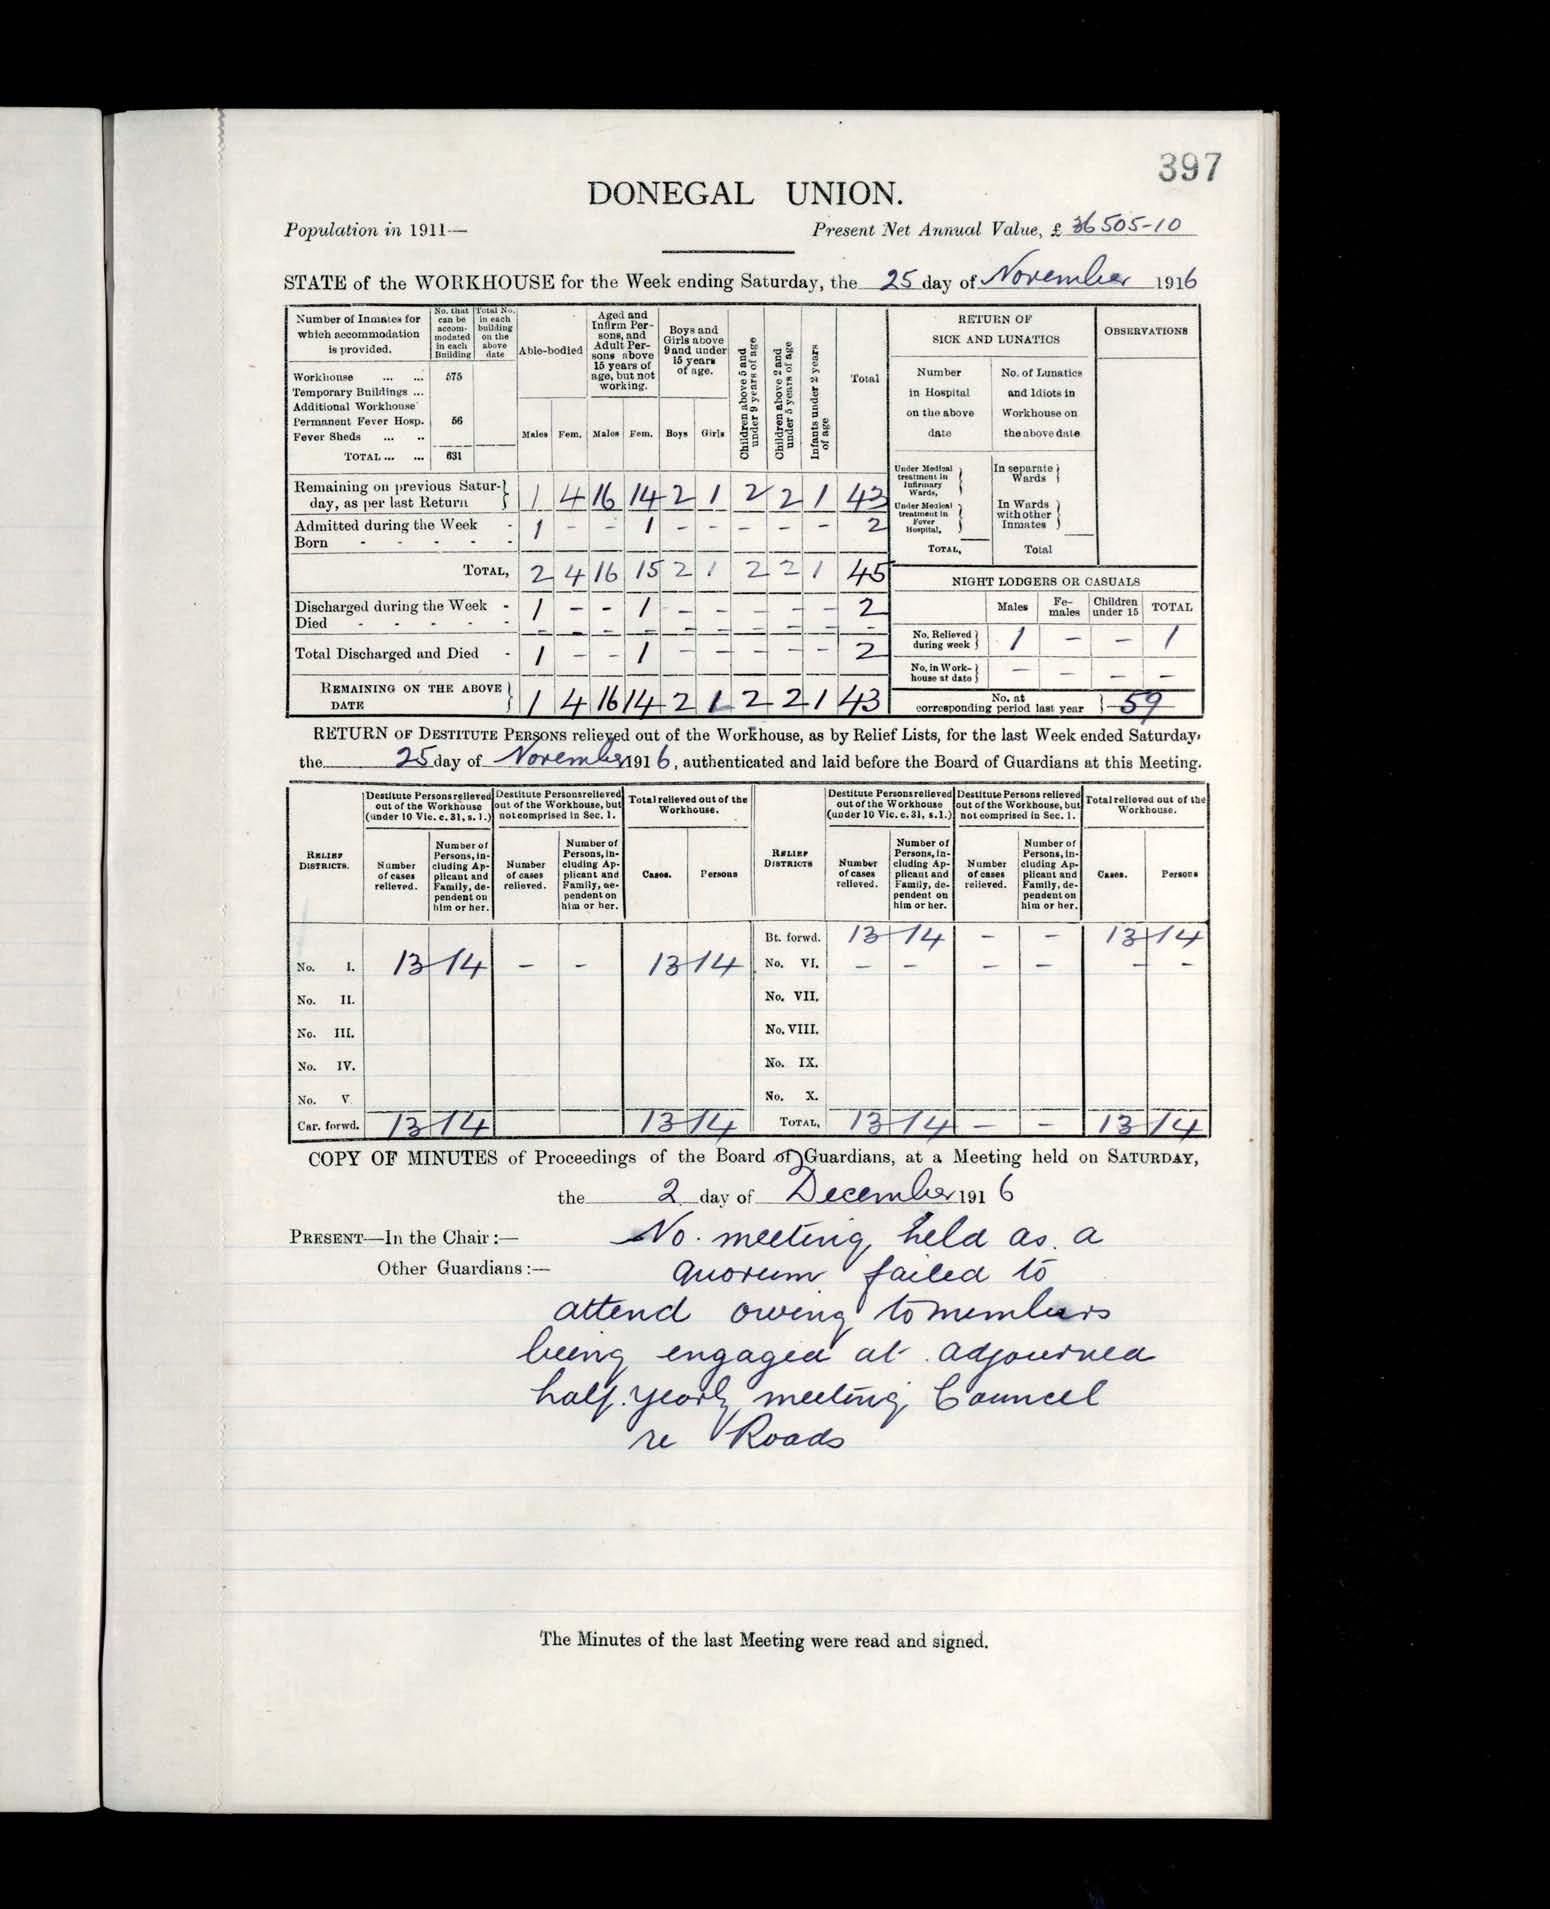 397
DONEGAL UNION.
Population in 1911—
Present Net Annual Value, £ 36505-10
STATE of the WORKHOUSE for the Week ending Saturday, the 25 day of November 1916
Number of Inmates for which accommodation is provided.
No. that can be accom- modated in each Building
Total No. in each building on the above date
Able-bodied
Aged and Infirm Per- sons, and Adult Per- sons above 15 years of age, but not working.
Boys and Girls above 9 and under 15 years of age.
Children above 5 and under 9 years of age
Children above 2 and under 5 years of age
Infants under 2 years of age
Total
Males Fem. Males Fem. Boys Girls
Workhouse ... ... 575
Temporary Buildings ...
Additional Workhouse
Permanent Fever Hosp. 56
Fever Sheds ... ..
TOTAL ... ... 631
Remaining on previous Satur- day, as per last Return 1 4 16 14 2 1 2 2 1 43
Admitted during the Week - 1 – – 1 – – – – – 2
Born - - - - -
TOTAL, 2 4 16 15 2 1 2 2 1 45
Discharged during the Week - 1 – – 1 – – – – – 2
Died - - - - - – – – – – – – – – –
Total Discharged and Died - 1 – – 1 – – – – – 2
REMAINING ON THE ABOVE DATE 1 4 16 14 2 1 2 2 1 43
RETURN OF SICK AND LUNATICS
OBSERVATIONS
Number in Hospital on the above date
No. of Lunatics and Idiots in Workhouse on the above date
Under Medical treatment in Infirmary Wards,
In separate Wards
Under Medical treatment in Fever Hospital,
In Wards with other Inmates
TOTAL, Total
NIGHT LODGERS OR CASUALS
Males Fe- males Children under 15 TOTAL
No. Relieved during week 1 – – 1
No. in Work- house at date – – – –
No. at corresponding period last year 59
RETURN OF DESTITUTE PERSONS relieved out of the Workhouse, as by Relief Lists, for the last Week ended Saturday,
the 25 day of November 1916, authenticated and laid before the Board of Guardians at this Meeting.
RELIEF DISTRICTS.
Destitute Persons relieved out of the Workhouse (under 10 Vic. c. 31, s. 1.)
Destitute Persons relieved out of the Workhouse, but not comprised in Sec. 1.
Total relieved out of the Workhouse.
RELIEF DISTRICTS
Destitute Persons relieved out of the Workhouse (under 10 Vic. c. 31, s.1.)
Destitute Persons relieved out of the Workhouse, but not comprised in Sec. 1.
Total relieved out of the Workhouse.
Number of cases relieved.
Number of Persons, in- cluding Ap- plicant and Family, de- pendent on him or her.
Number of cases relieved.
Number of Persons, in- cluding Ap- plicant and Family, de- pendent on him or her.
Cases. Persons
Number of cases relieved.
Number of Persons, in- cluding Ap- plicant and Family, de- pendent on him or her.
Number of cases relieved.
Number of Persons, in- cluding Ap- plicant and Family, de- pendent on him or her.
Cases. Persons
Bt. forwd. 13 14 – – 13 14
No. I. 13 14 – – 13 14 No. VI. – – – – – –
No. II. No. VII.
No. III. No. VIII.
No. IV. No. IX.
No. V. No. X.
Car. forwd. 13 14 13 14 TOTAL, 13 14 – – 13 14
COPY OF MINUTES of Proceedings of the Board of Guardians, at a Meeting held on SATURDAY,
the 2 day of December 1916
PRESENT—In the Chair :— No. meeting held as a
Other Guardians :— quorum failed to
attend owing to members
being engaged at adjourned
half. yearly meeting Council
re Roads
The Minutes of the last Meeting were read and signed.